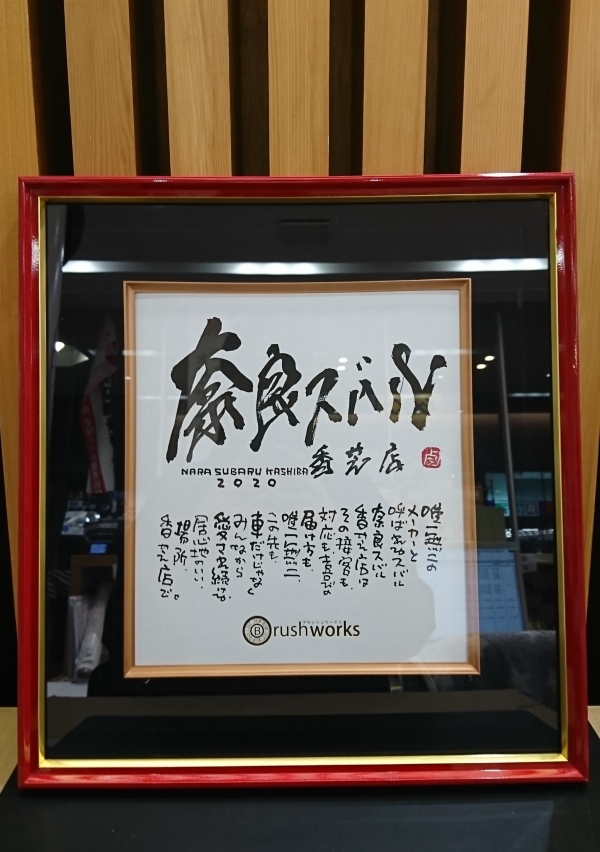 奈良スバル
NARA SUBARU KASHIBA
2020
香芝店
唯一無二の
メーカーと
呼ばれるスバル
奈良スバル
香芝店は
その接客も、
対応も喜びの
届け方も、
唯一無二、
この先も、
車だけじゃなく
みんなから
愛され続ける、
居心地のいい、
場所、
香芝店で。
ブラッシュワークス
Brushworks